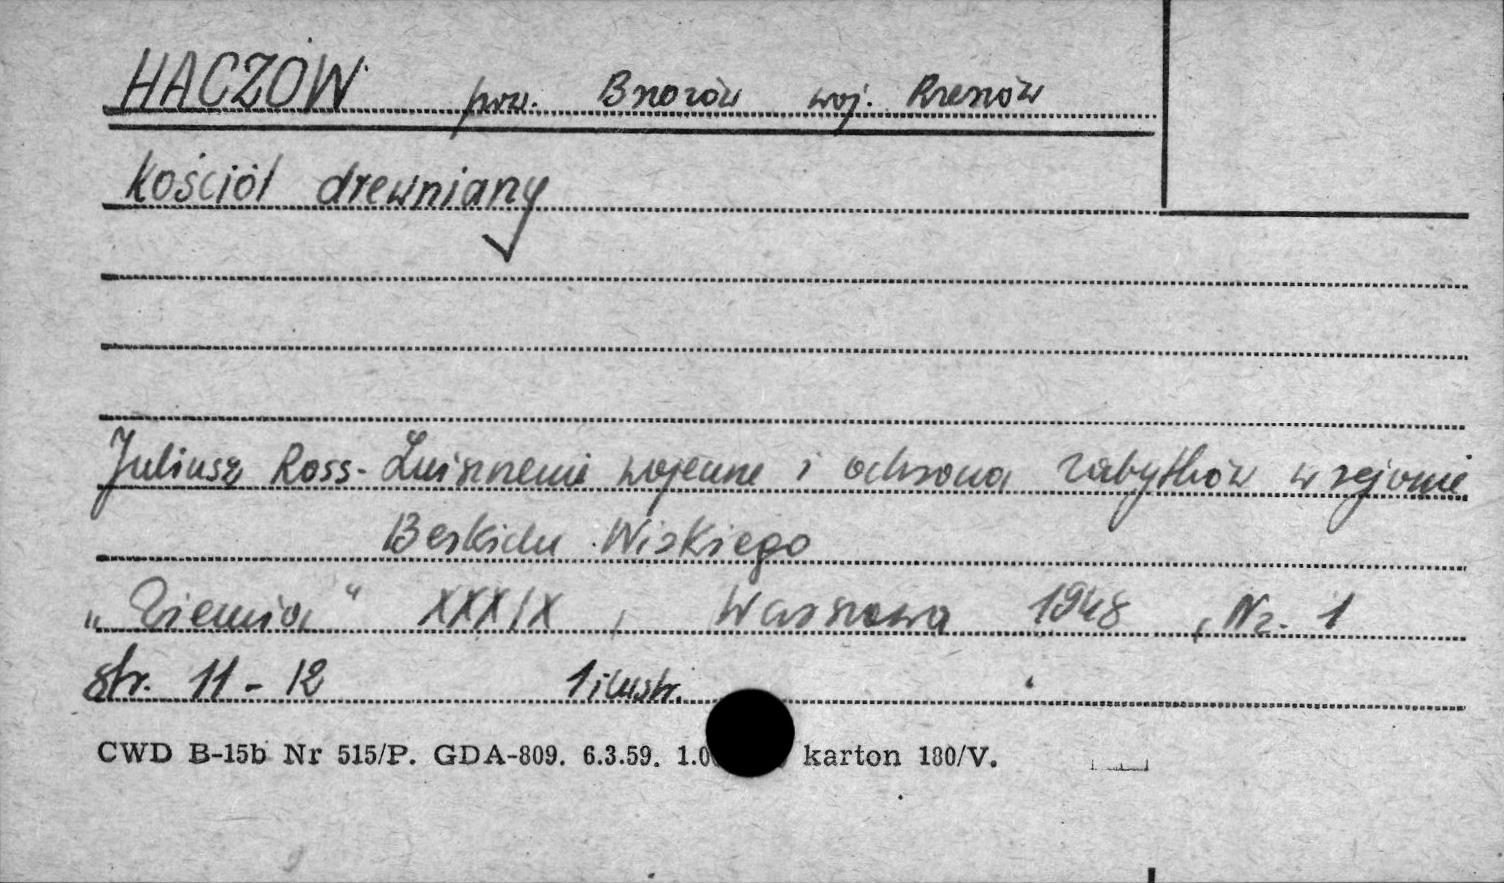 HACZÓW pow. Brzozów woj. Rzeszów
Kościół drewniany
Juliusz Ross - Zniszczenie wojenne i ochrona zabytków w rejonie
Beskidu Niskiego
„Ziemia" XXXIX, Warszawa 1948, Nr. 1
str. 11-12 1 ilustr.
CWD B-15b Nr 515/P. GDA-809. 6.3.59. karton 180/V.